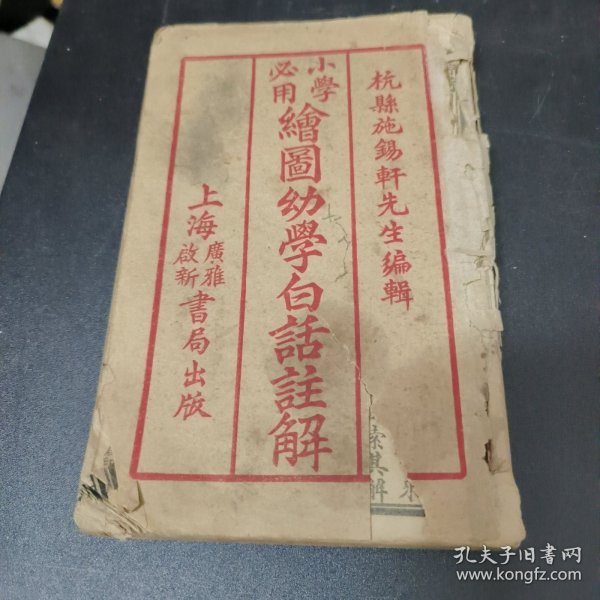 杭縣施錫軒先生編輯
小學必用
繪圖幼學白話註解
上海廣雅啟新書局出版
索其
解
孔夫子旧书网
www.kongfz.com